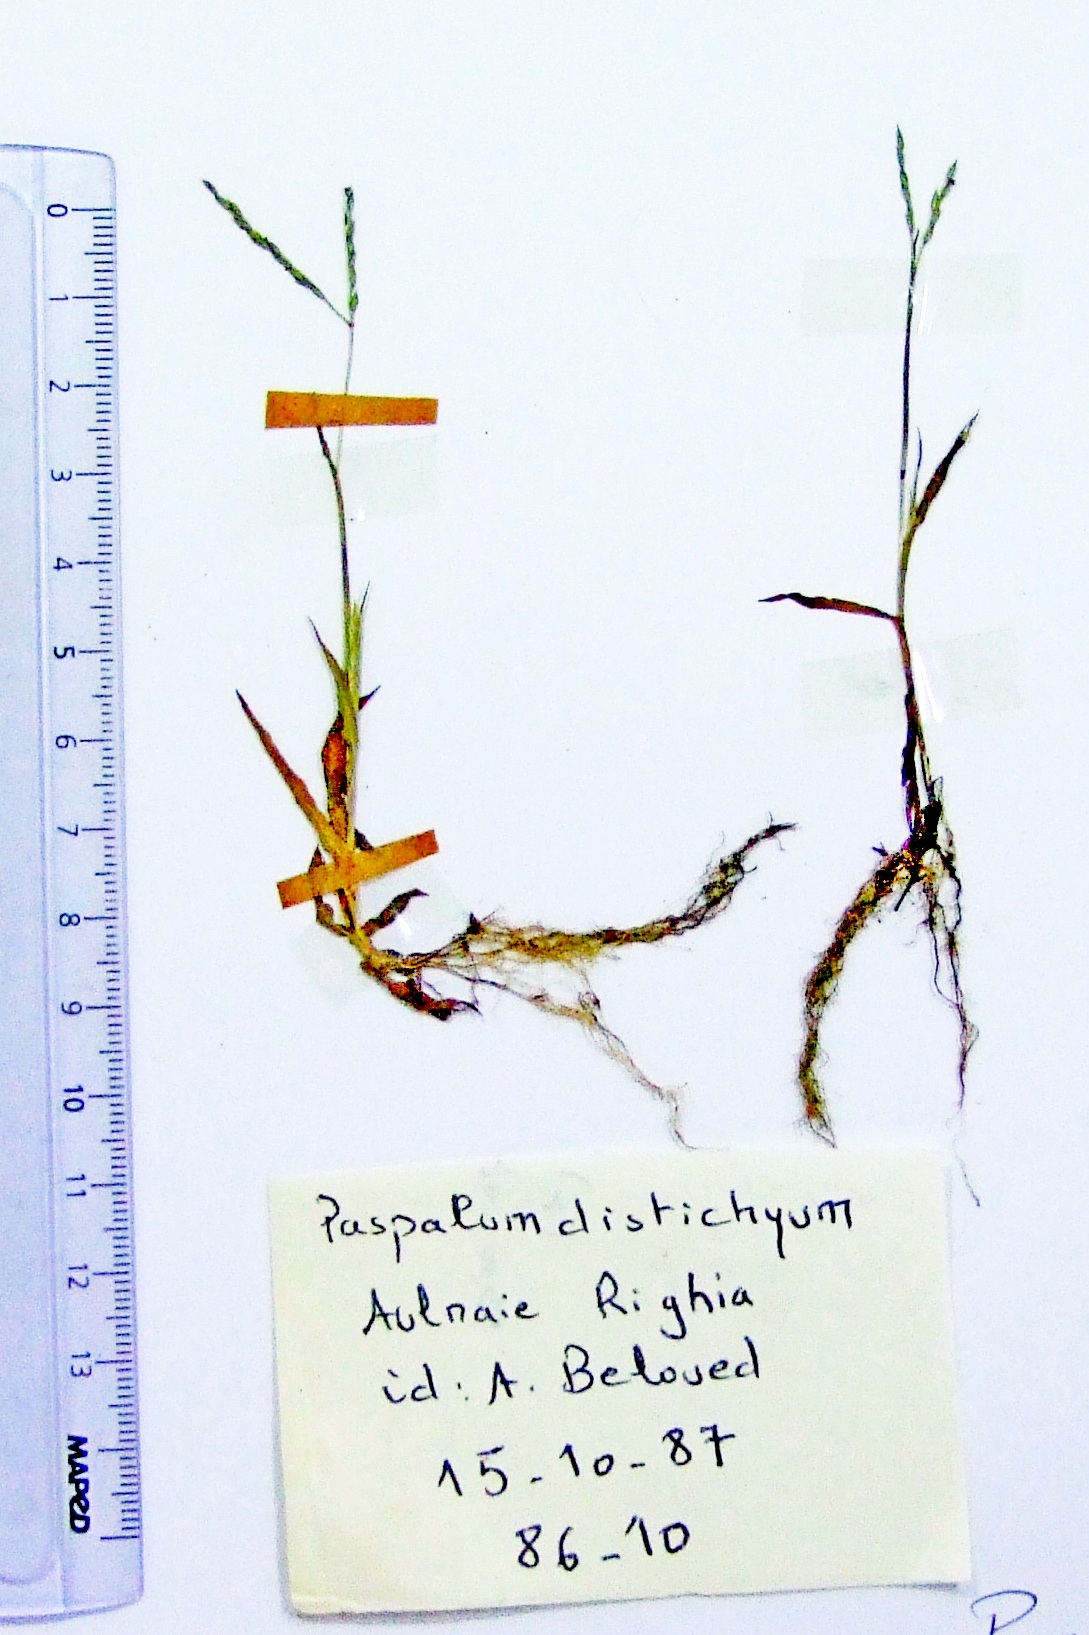 0
1
2
3
4
5
6
7
8
9
10
11
12
13
MAPED
Paspalum distichyum
Aulnaie Righia
id: A. Beloued
15-10-87
86-10
P